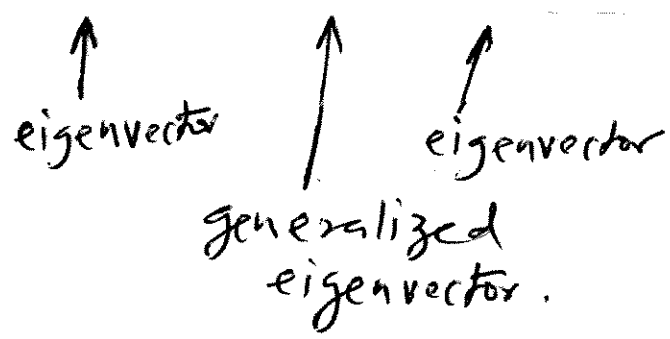 eigenvector
eigenvector
generalized
eigenvector.